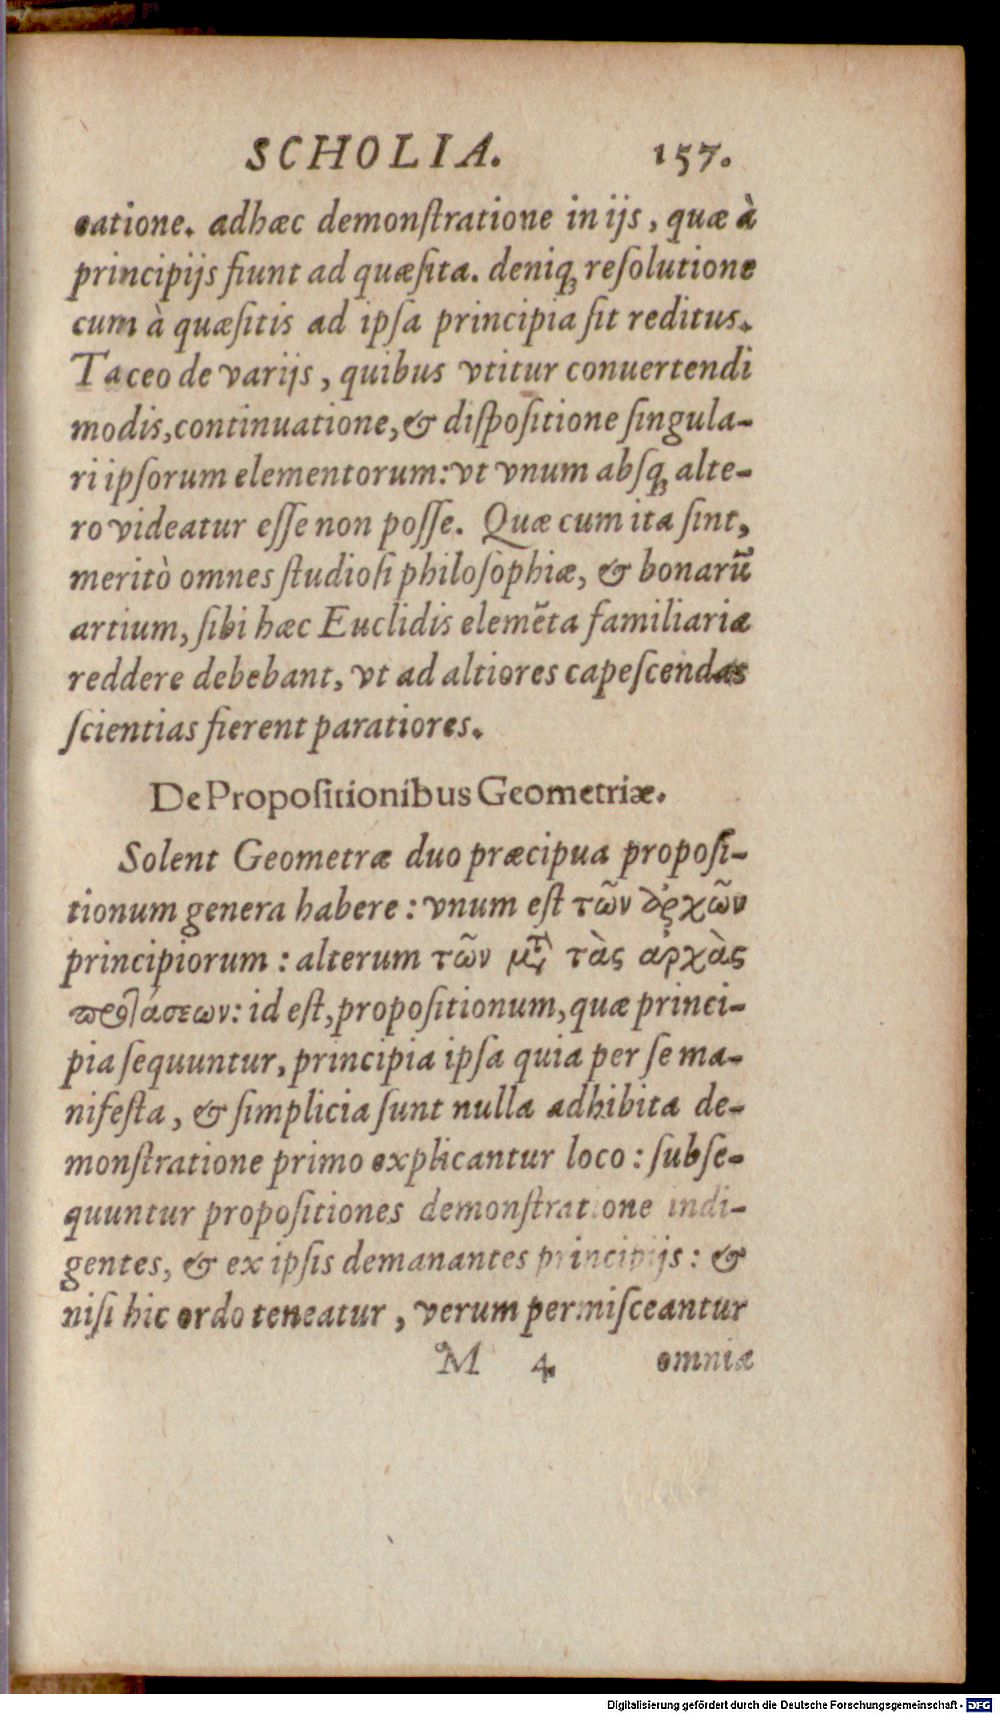 SCHOLIA. 157.
catione. adhæc demonſtratione in ijs, quæ à
principijs fiunt ad quæſita. deniq; reſolutione
cum à quæſitis ad ipſa principia ſit reditus.
Taceo de varijs, quibus vtitur conuertendi
modis, continuatione, & diſpoſitione ſingula-
ri ipſorum elementorum: vt vnum abſq; alte-
ro videatur eſſe non poſſe. Quæ cum ita ſint,
meritò omnes ſtudioſi philoſophiæ, & bonarũ
artium, ſibi hæc Euclidis elemẽta familiaria
reddere debebant, vt ad altiores capeſcendas
ſcientias fierent paratiores.
De Propoſitionibus Geometriæ.
Solent Geometræ duo præcipua propoſi-
tionum genera habere: vnum eſt τῶν ἀρχῶν
principiorum: alterum τῶν μετὰ τὰς ἀρχὰς
προτάσεων: id eſt, propoſitionum, quæ princi-
pia ſequuntur, principia ipſa quia per ſe ma-
nifeſta, & ſimplicia ſunt nulla adhibita de-
monſtratione primo explicantur loco: ſubſe-
quuntur propoſitiones demonſtratione indi-
gentes, & ex ipſis demanantes principijs: &
niſi hic ordo teneatur, verum permiſceantur
M 4 omnia
Digitalisierung gefördert durch die Deutsche Forschungsgemeinschaft - DFG